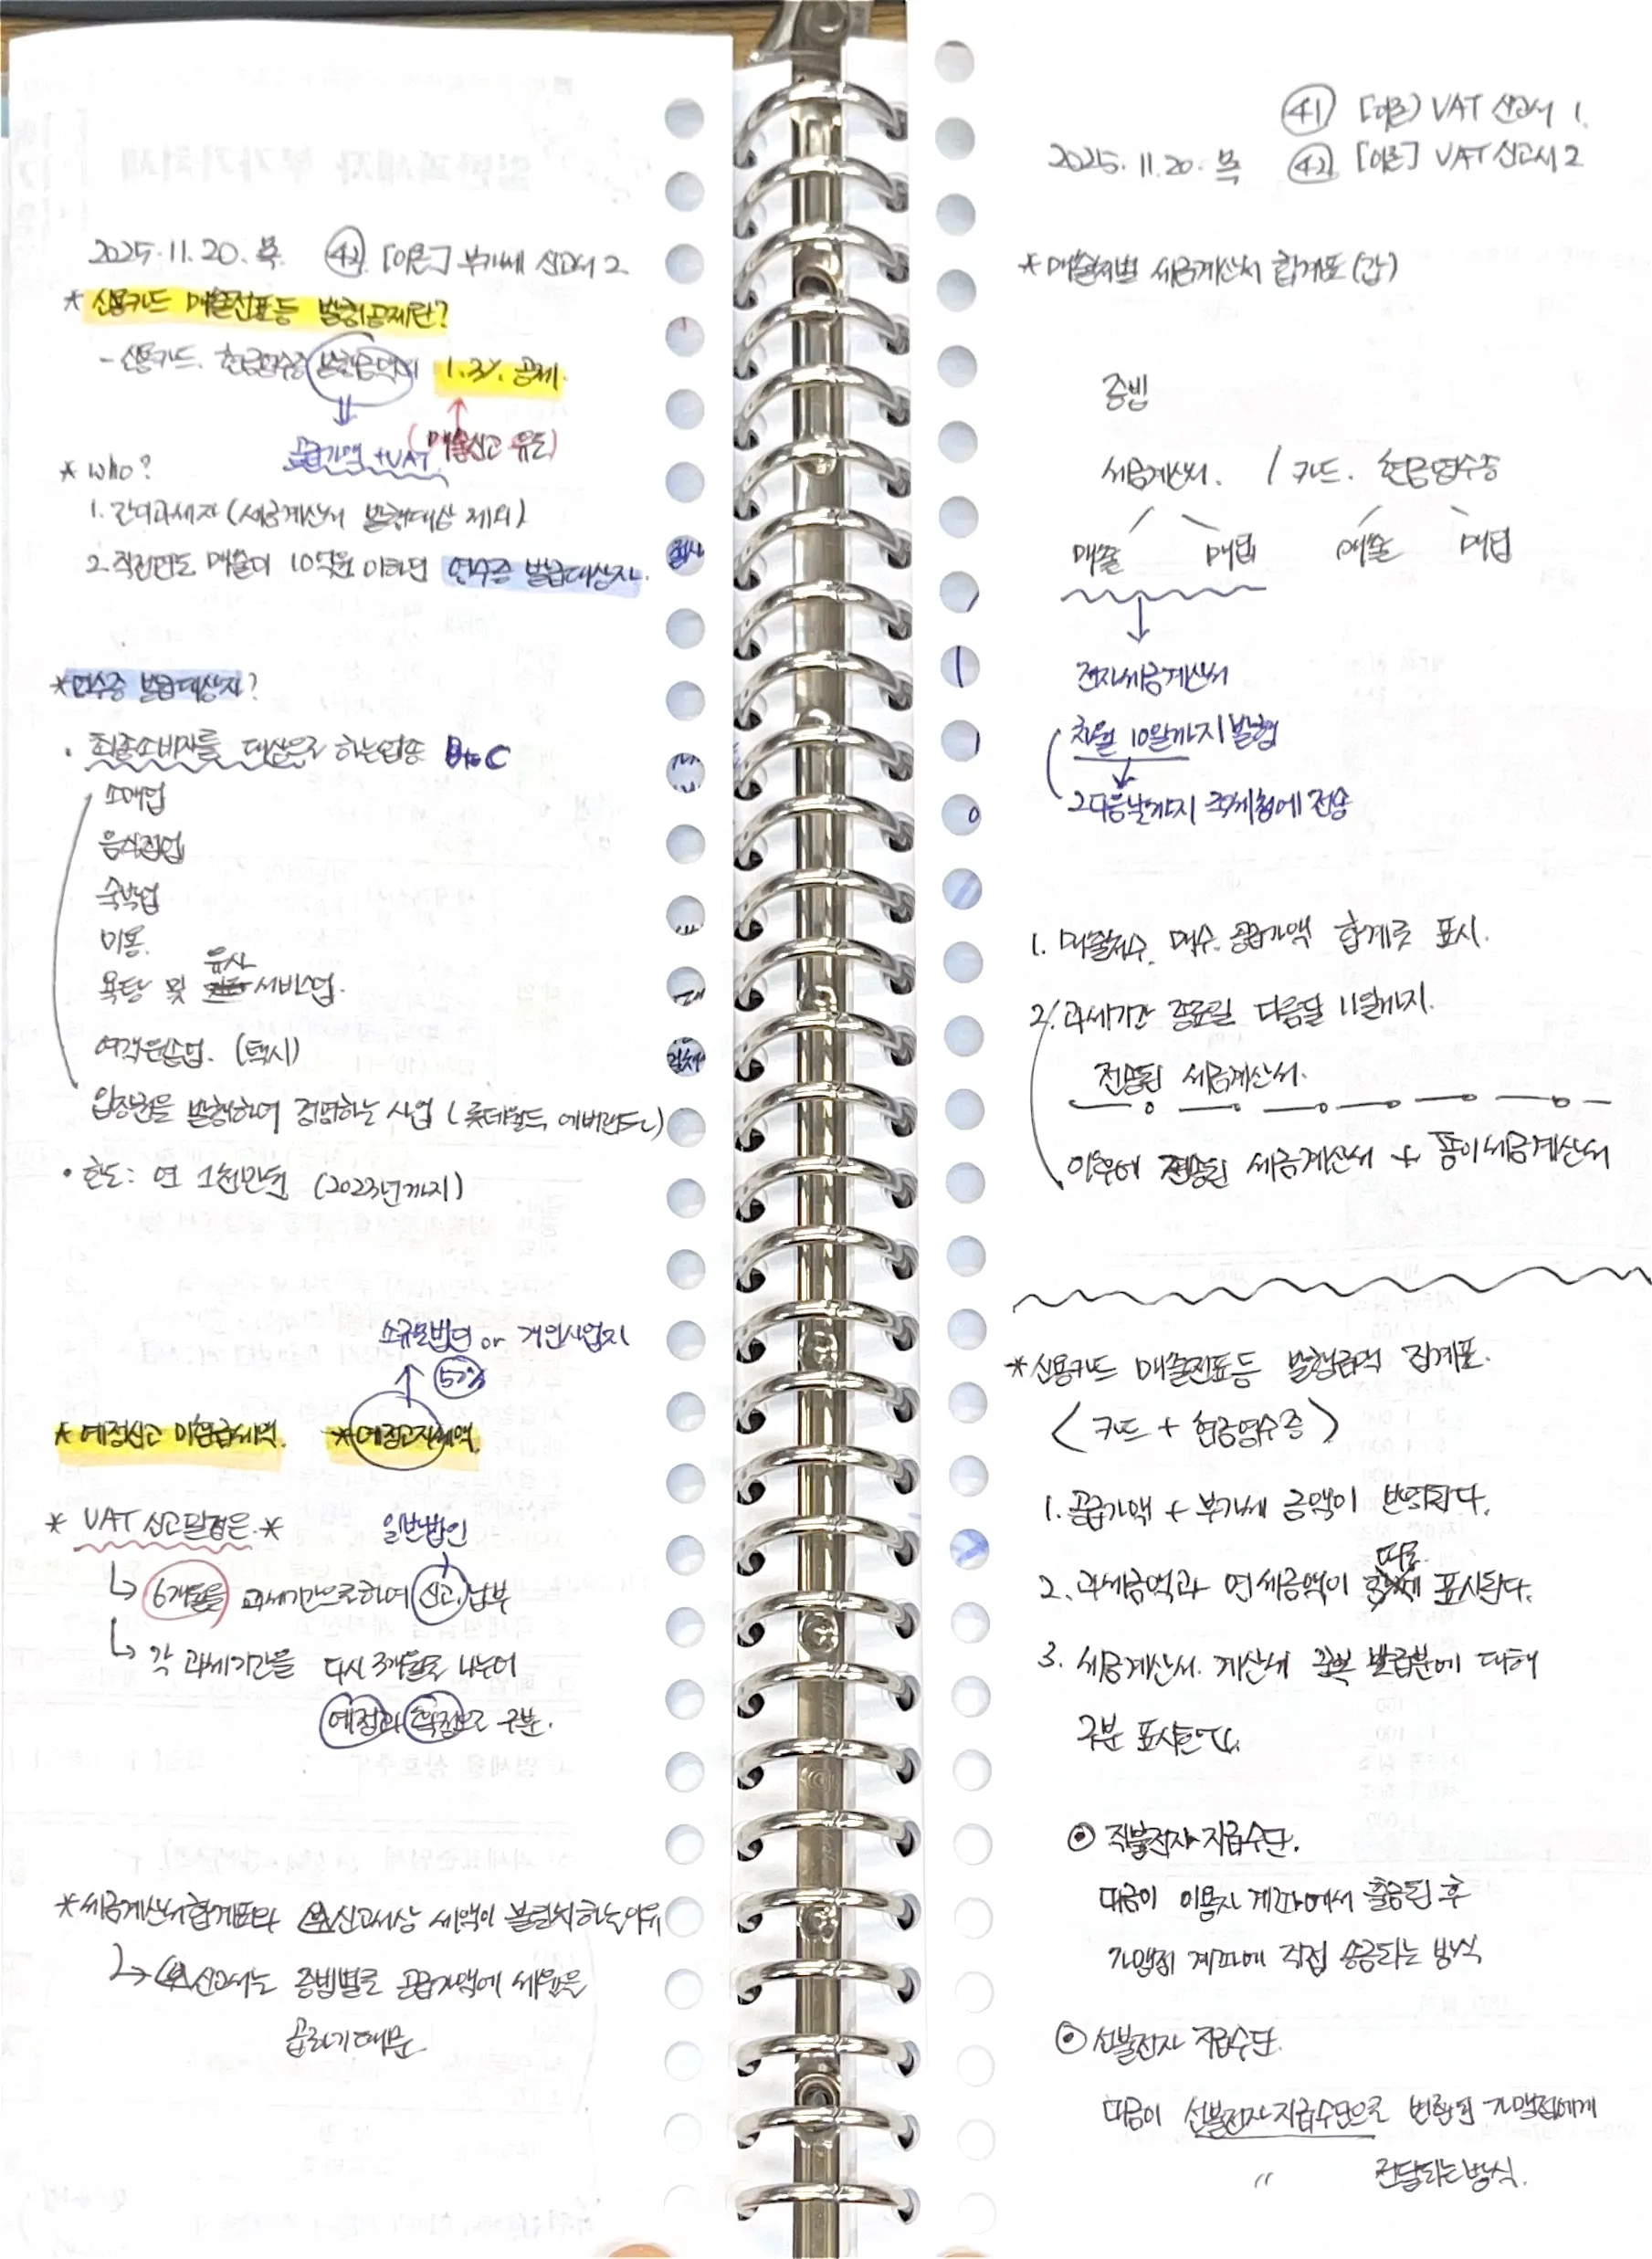 2025.11.20. 목 ㊷ [이론] 부가세 신고서 2
* 신용카드 매출전표등 발행공제란?
- 신용카드. 현금영수증 발행금액의 1.3% 공제.
공급가액 + VAT (매출신고 유도)
* who?
1. 간이과세자 (세금계산서 발행대상 제외)
2. 직전연도 매출이 10억원 이하인 영수증 발급대상자.
* 영수증 발급대상자?
· 최종소비자를 대상으로 하는업종 BtoC
소매업
음식점업
숙박업
미용.
욕탕 및 유사 서비스업.
여객운송업. (택시)
입장권을 발행하여 경영하는 사업 (롯데월드 에버랜드)
· 한도: 연 1천만원 (2023년까지)
소규모법인 or 개인사업자
50%
* 예정신고 미환급세액. * 예정고지세액.
* VAT 신고일정은. * 일반법인
↳ 6개월을 과세기간으로하여 신고.납부
↳ 각 과세기간을 다시 3개월로 나누어
예정과 확정으로 구분.
* 세금계산서합계표와 신고서상 세액이 불일치하는이유
↳ 신고서는 증빙별로 공급가액에 세율을
곱하기때문
㊶ [이론] VAT 신고서 1.
2025.11.20. 목 ㊷ [이론] VAT 신고서 2
* 매출처별 세금계산서 합계표 (갑)
증빙
세금계산서. / 카드. 현금영수증
매출 매입 매출 매입
↓
전자세금계산서
차월 10일까지 발행
↓
다음날까지 국세청에 전송
1. 매출처수. 매수. 공급가액 합계로 표시.
2. 과세기간 종료일 다음달 11일까지.
전송된 세금계산서.
이후에 전송된 세금계산서 + 종이세금계산서
* 신용카드 매출전표등 발행금액 집계표.
< 카드 + 현금영수증 >
1. 공급가액 + 부가세 금액이 반영된다.
2. 과세금액과 면세금액이 따로 표시된다.
3. 세금계산서. 계산서 중복 발급분에 대해
구분 표시한다.
⊙ 직불전자 지급수단.
대금이 이용자 계좌에서 출금된 후
가맹점 계좌에 직접 송금되는 방식
⊙ 선불전자 지급수단.
대금이 선불전자지급수단으로 변환된 가맹점에게
〃 전달되는방식.